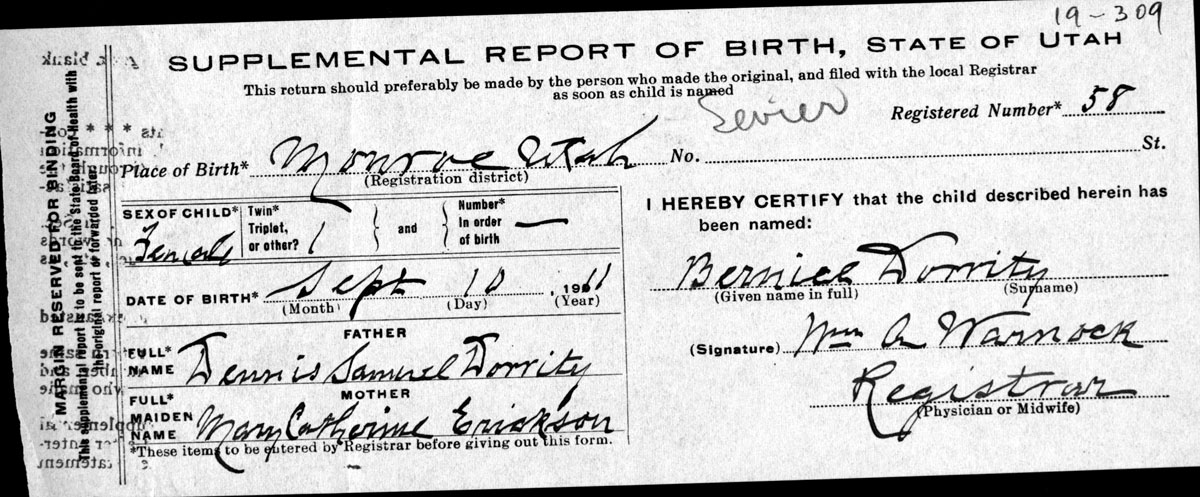 19-309
SUPPLEMENTAL REPORT OF BIRTH, STATE OF UTAH
This return should preferably be made by the person who made the original, and filed with the local Registrar
as soon as child is named
Sevier
Registered Number* 58
Place of Birth* Monroe Utah No. St.
(Registration district)
SEX OF CHILD* Female
Twin* Triplet, or other? 1 } and { Number* In order of birth —
DATE OF BIRTH* Sept 10, 1911
(Month) (Day) (Year)
FATHER
FULL* NAME Dennis Samuel Dorrity
MOTHER
FULL* MAIDEN NAME Mary Catherine Erickson
*These items to be entered by Registrar before giving out this form.
I HEREBY CERTIFY that the child described herein has
been named:
Bernice Dorrity
(Given name in full) (Surname)
(Signature) Wm A Warnock
Registrar
(Physician or Midwife)
MARGIN RESERVED FOR BINDING
This supplemental report is to be sent to the State Board of Health with
the original report or forwarded later.